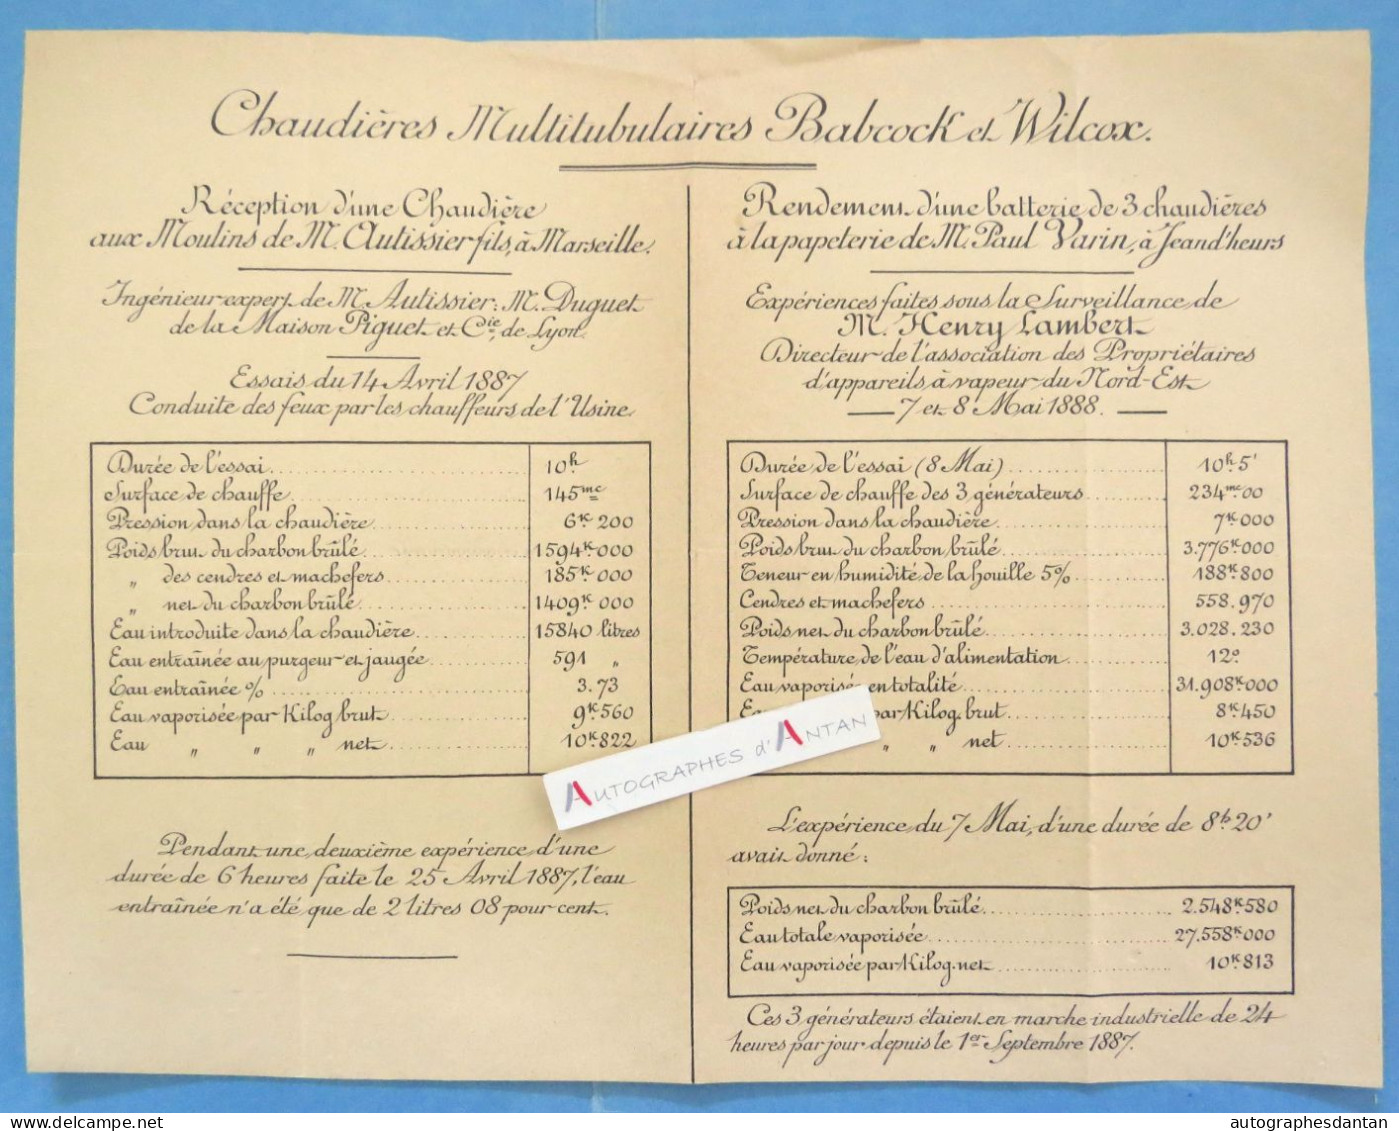 Chaudières Multitubulaires Babcock et Wilcox.
Réception d'une Chaudière
aux Moulins de M. Autissier fils, à Marseille.
Ingénieur expert de M. Autissier: M. Duguet
de la Maison Piguet et Cie, de Lyon.
Essais du 14 Avril 1887
Conduite des feux par les chauffeurs de l'Usine
Durée de l'essai 10h
Surface de chauffe 145mc
Pression dans la chaudière 6K.200
Poids brut du charbon brûlé 1594K.000
„ des cendres et machefers 185K.000
„ net du charbon brûlé 1409K.000
Eau introduite dans la chaudière 15840 litres
Eau entraînée au purgeur et jaugée 591 „
Eau entraînée % 3.73
Eau vaporisée par Kilog brut 9K.560
Eau „ „ „ net 10K.822
Pendant une deuxième expérience d'une
durée de 6 heures faite le 25 Avril 1887, l'eau
entraînée n'a été que de 2 litres 08 pour cent.
Rendement d'une batterie de 3 chaudières
à la papeterie de M. Paul Varin, à Jeand'heurs
Expériences faites sous la Surveillance de
M. Henry Lambert
Directeur de l'association des Propriétaires
d'appareils à vapeur du Nord-Est
7 et 8 Mai 1888.
Durée de l'essai (8 Mai) 10h.5'
Surface de chauffe des 3 générateurs 234mc.00
Pression dans la chaudière 7K.000
Poids brut du charbon brûlé 3.776K.000
Teneur en humidité de la houille 5% 188K.800
Cendres et machefers 558.970
Poids net du charbon brûlé 3.028.230
Température de l'eau d'alimentation 12°
Eau vaporisée en totalité 31.908K.000
par Kilog. brut 8K.450
„ „ net 10K.536
L'expérience du 7 Mai, d'une durée de 8h.20'
avait donné:
Poids net du charbon brûlé 2.548K.580
Eau totale vaporisée 27.558K.000
Eau vaporisée par Kilog. net 10K.813
Ces 3 générateurs étaient en marche industrielle de 24
heures par jour depuis le 1er Septembre 1887.
Autographes d'Antan
www.delcampe.net
autographesdantan